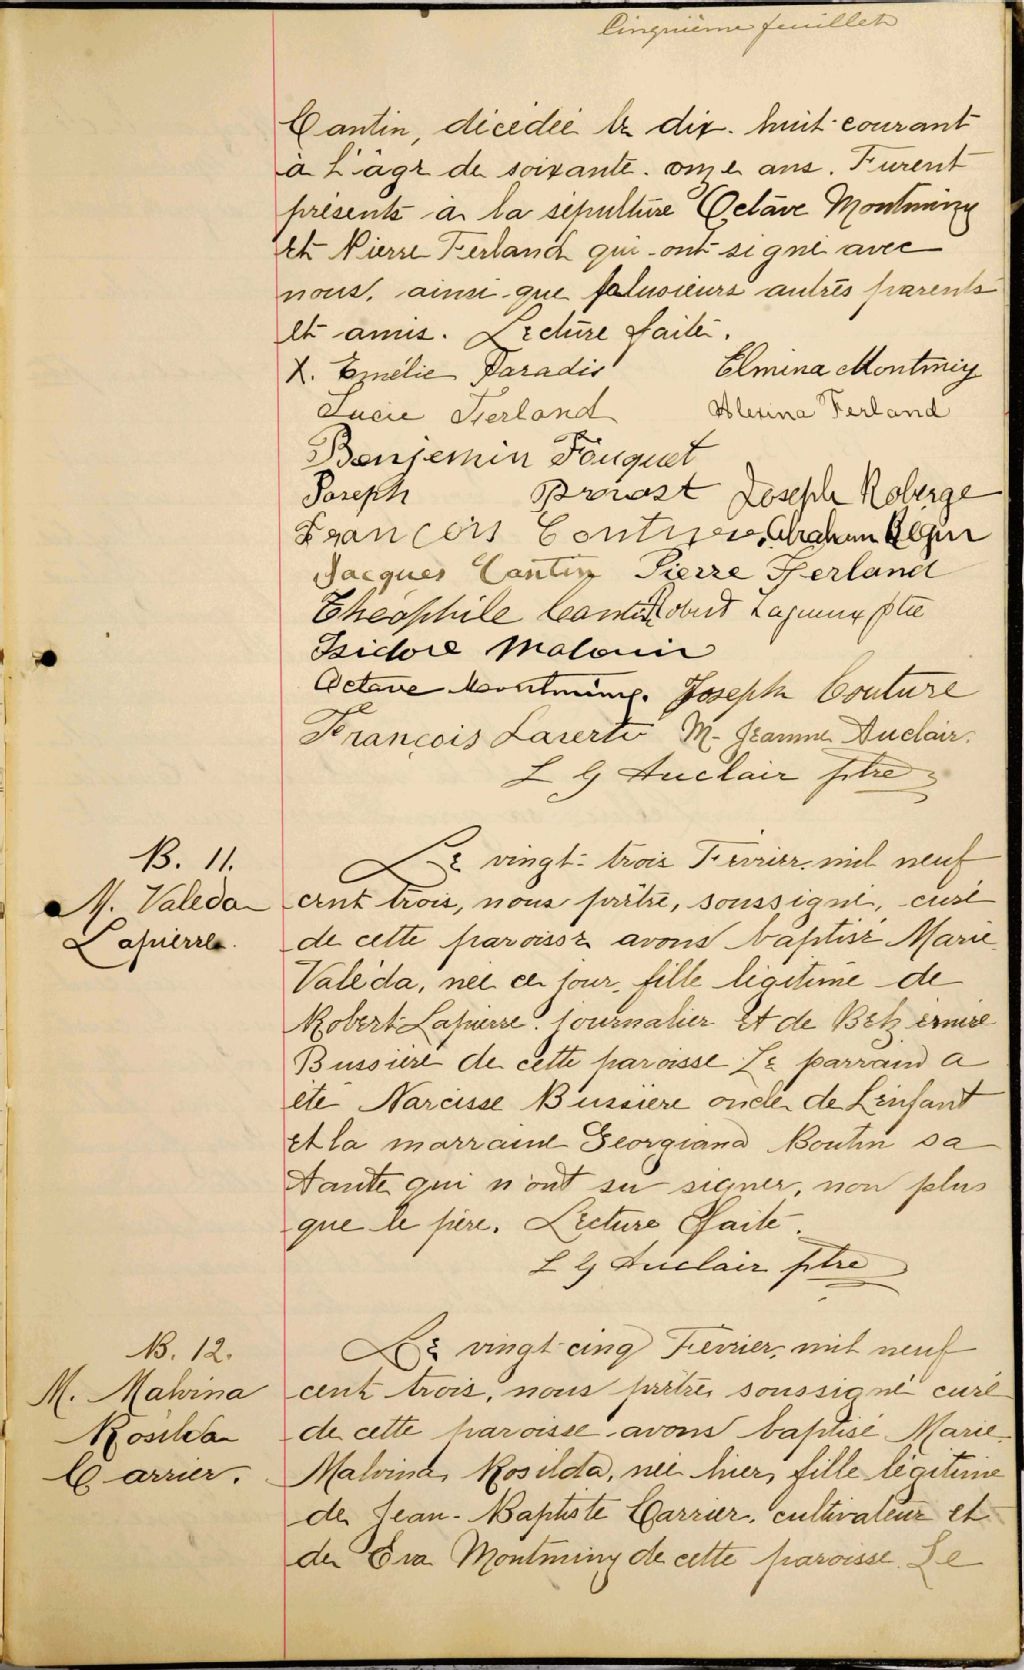 Cinquième feuillet
Cantin, décédée le dix-huit courant
à l'âge de soixante-onze ans. Furent
présents à la sépulture Octave Montminy
et Pierre Ferland qui ont signé avec
nous, ainsi que plusieurs autres parents
et amis. Lecture faite.
X. Emélie Paradis Elmina Montminy
Lucie Ferland Alexina Ferland
Benjemin Fouquet
Joseph Provost Joseph Roberge
François Couture Abraham Bégin
Jacques Cantin Pierre Ferland
Théophile Cantin Robert Lagueux ptre
Isidore Malouin
Octave Montminy. Joseph Couture
François Laverte M-Jeanne Auclair.
L G Auclair ptre
B. 11.
M. Valéda
Lapierre.
Le vingt-trois Février, mil neuf
cent trois, nous prêtre, soussigné, curé
de cette paroisse avons baptisé Marie
Valéda, née ce jour, fille légitime de
Robert Lapierre, journalier et de
Bussière de cette paroisse Le parrain a
été Narcisse Bussière oncle de L'enfant
et la marraine Georgiana Boutin sa
tante qui n'ont su signer, non plus
que le père. Lecture faite.
L G Auclair ptre
B. 12.
M. Malvina
Rosilda
Carrier.
Le vingt-cinq Février, mil neuf
cent trois, nous prêtre, soussigné curé
de cette paroisse avons baptisé Marie
Malvina Rosilda, née hier, fille légitime
de Jean-Baptiste Carrier, cultivateur et
de Eva Montminy de cette paroisse. Le